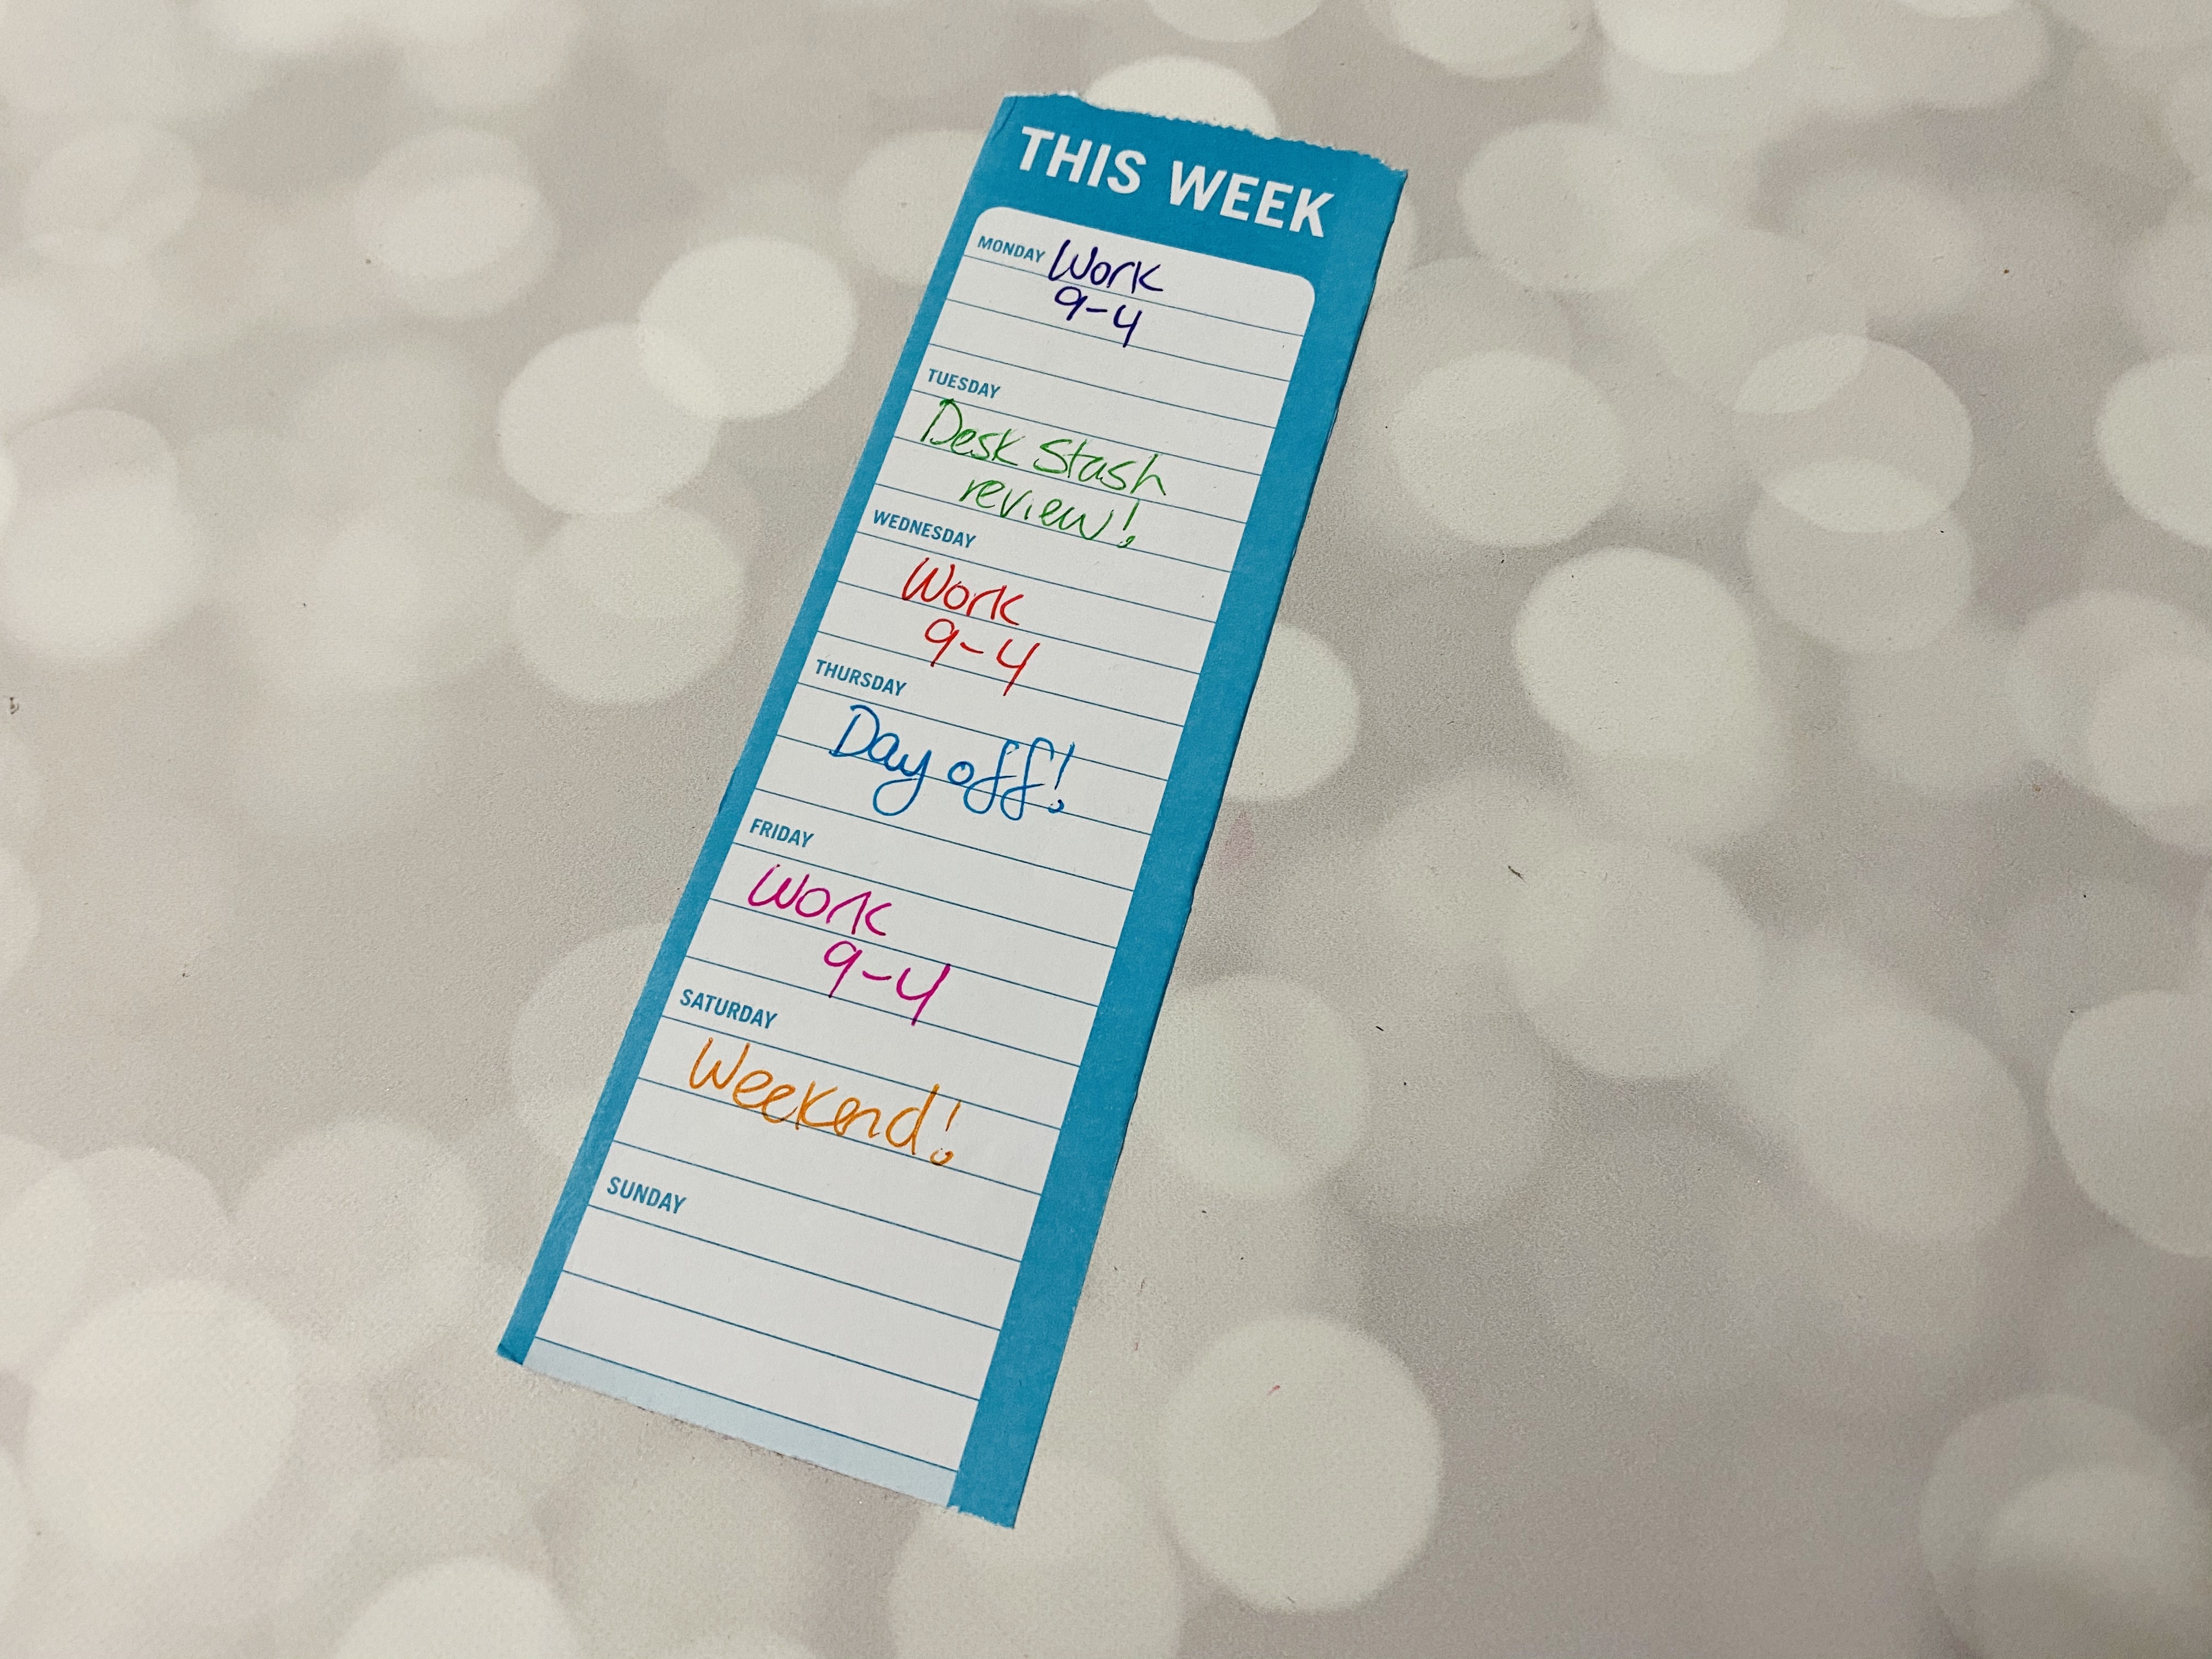 THIS WEEK
MONDAY Work
9-4
TUESDAY
Desk Stash
review!
WEDNESDAY
Work
9-4
THURSDAY
Day off!
FRIDAY
Work
9-4
SATURDAY
Weekend!
SUNDAY